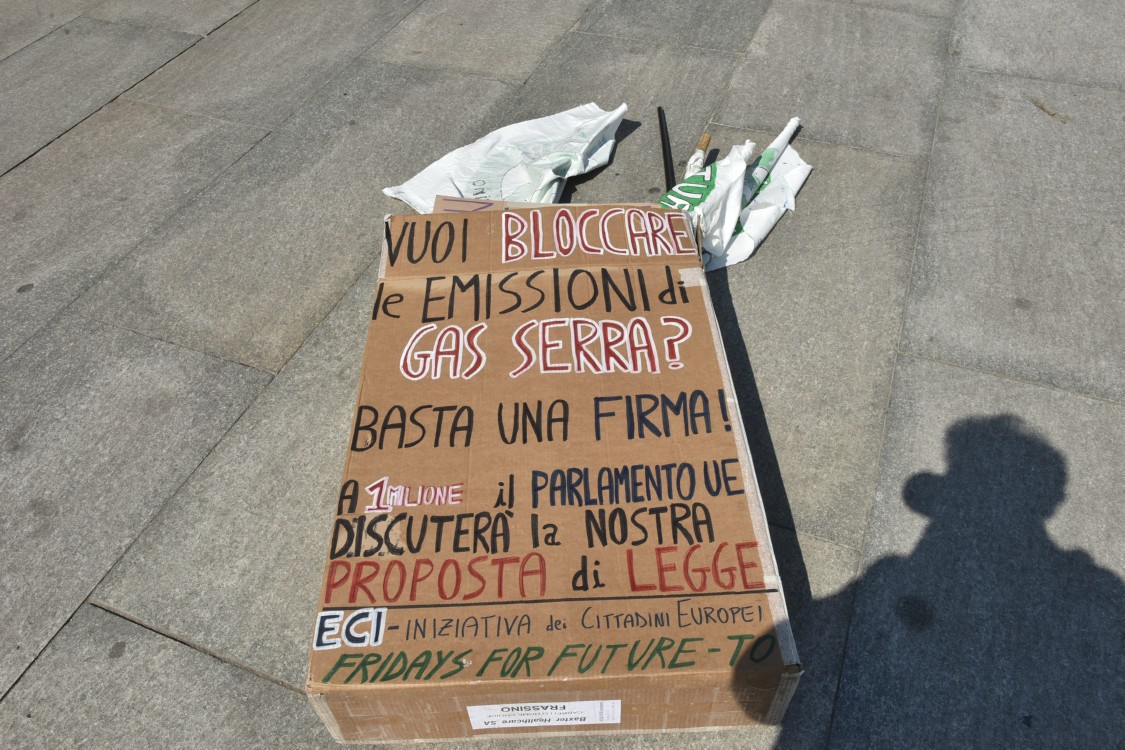 VUOI BLOCCARE
le EMISSIONI di
GAS SERRA?
BASTA UNA FIRMA!
A 1 MILIONE il PARLAMENTO UE
DISCUTERÀ la NOSTRA
PROPOSTA di LEGGE
ECI-INIZIATIVA dei CITTADINI EUROPEI
FRIDAYS FOR FUTURE-TO
Baxter Healthcare SA
FRASSINO